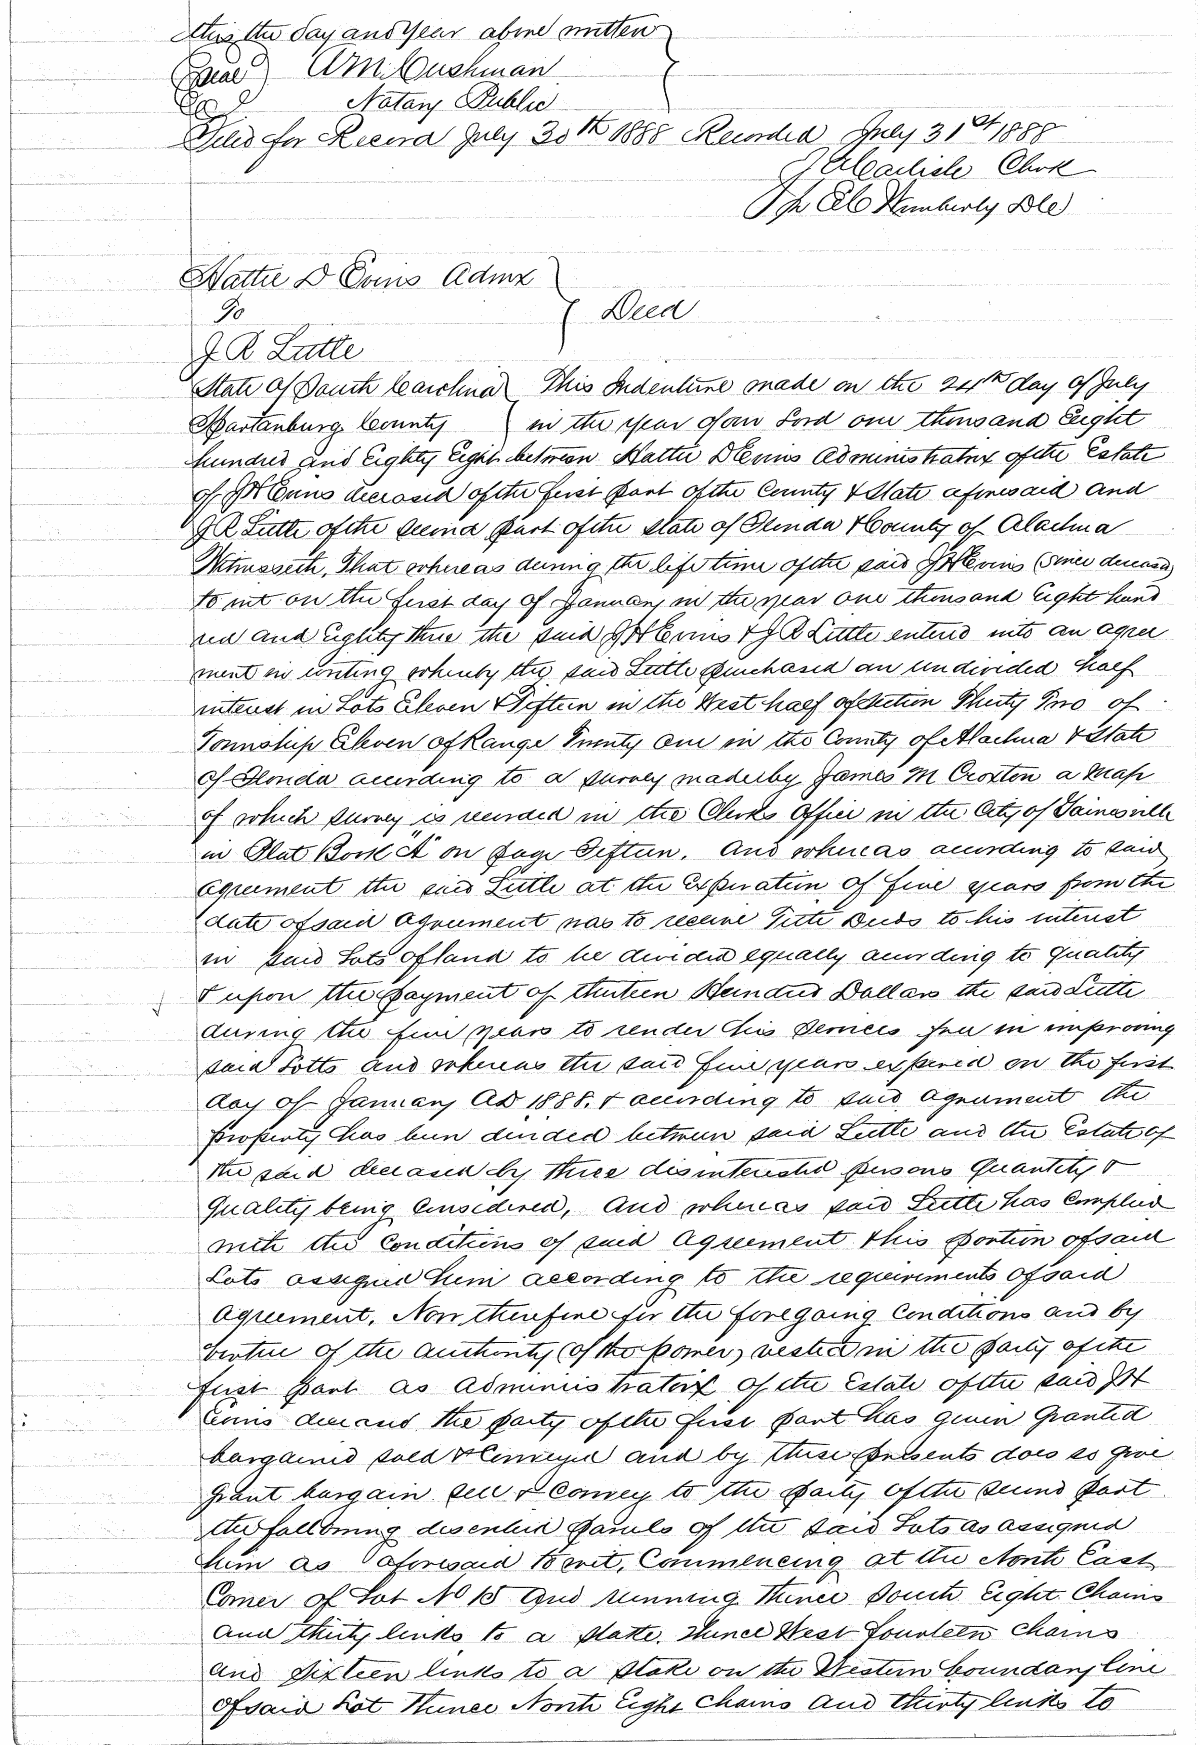 this the day and Year above written
(Seal) Wm Cushman
Notary Public
Filed for Record July 30th 1888 Recorded July 31st 1888
J A Carlisle Clerk
Pr Wimberly D C
Hattie D Evins Admx
To } Deed
J R Little
State of South Carolina } This Indenture made on the 24th day of July
Spartanburg County } in the year of our Lord one thousand Eight
hundred and Eighty Eight between Hattie D Evins Administratrix of the Estate
of J H Evins deceased of the first part of the County & State aforesaid and
J R Little of the second part of the State of Florida & County of Alachua
Witnesseth, That whereas during the life time of the said J H Evins (since deceased)
to wit on the first day of January in the year one thousand Eight hund
red and Eighty three the said J H Evins & J R Little entered into an agree
ment in writing whereby the said Little purchased an undivided half
interest in Lots Eleven & Fifteen in the West half of Section Thirty Two of
Township Eleven of Range Twenty One in the County of Alachua & State
of Florida according to a survey made by James M Croxton a Map
of which survey is recorded in the Clerks Office in the City of Gainesville
in Plat Book "A" on page Fifteen. And whereas according to said
agreement the said Little at the Expiration of five years from the
date of said Agreement was to receive Title Deeds to his interest
in said Lots of land to be divided equally according to quality
& upon the payment of thirteen Hundred Dollars the said Little
during the five years to render his services free in improving
said Lotts and whereas the said five years expired on the first
day of January AD 1888. & according to said Agreement the
property has been divided between said Little and the Estate of
the said deceased by three disinterested persons Quantity &
Quality being Considered, And whereas said Little has Complied
with the Conditions of said Agreement this portion of said
Lots assigned him according to the requirements of said
Agreement. Now therefore for the foregoing Conditions and by
virtue of the authority (of the power) vested in the party of the
first part as Administratrix of the Estate of the said J H
Evins deceased the party of the first part has given Granted
bargained sold & Conveyed and by these presents does so give
grant bargain sell & Convey to the party of the second part
the following described parcels of the said Lots as assigned
him as aforesaid to wit, Commencing at the North East
Corner of Lot No 15 and running thence South Eight Chains
and thirty links to a stake. Thence West Fourteen Chains
and Sixteen links to a stake on the Western boundary line
of said Lot Thence North Eight Chains and thirty links to